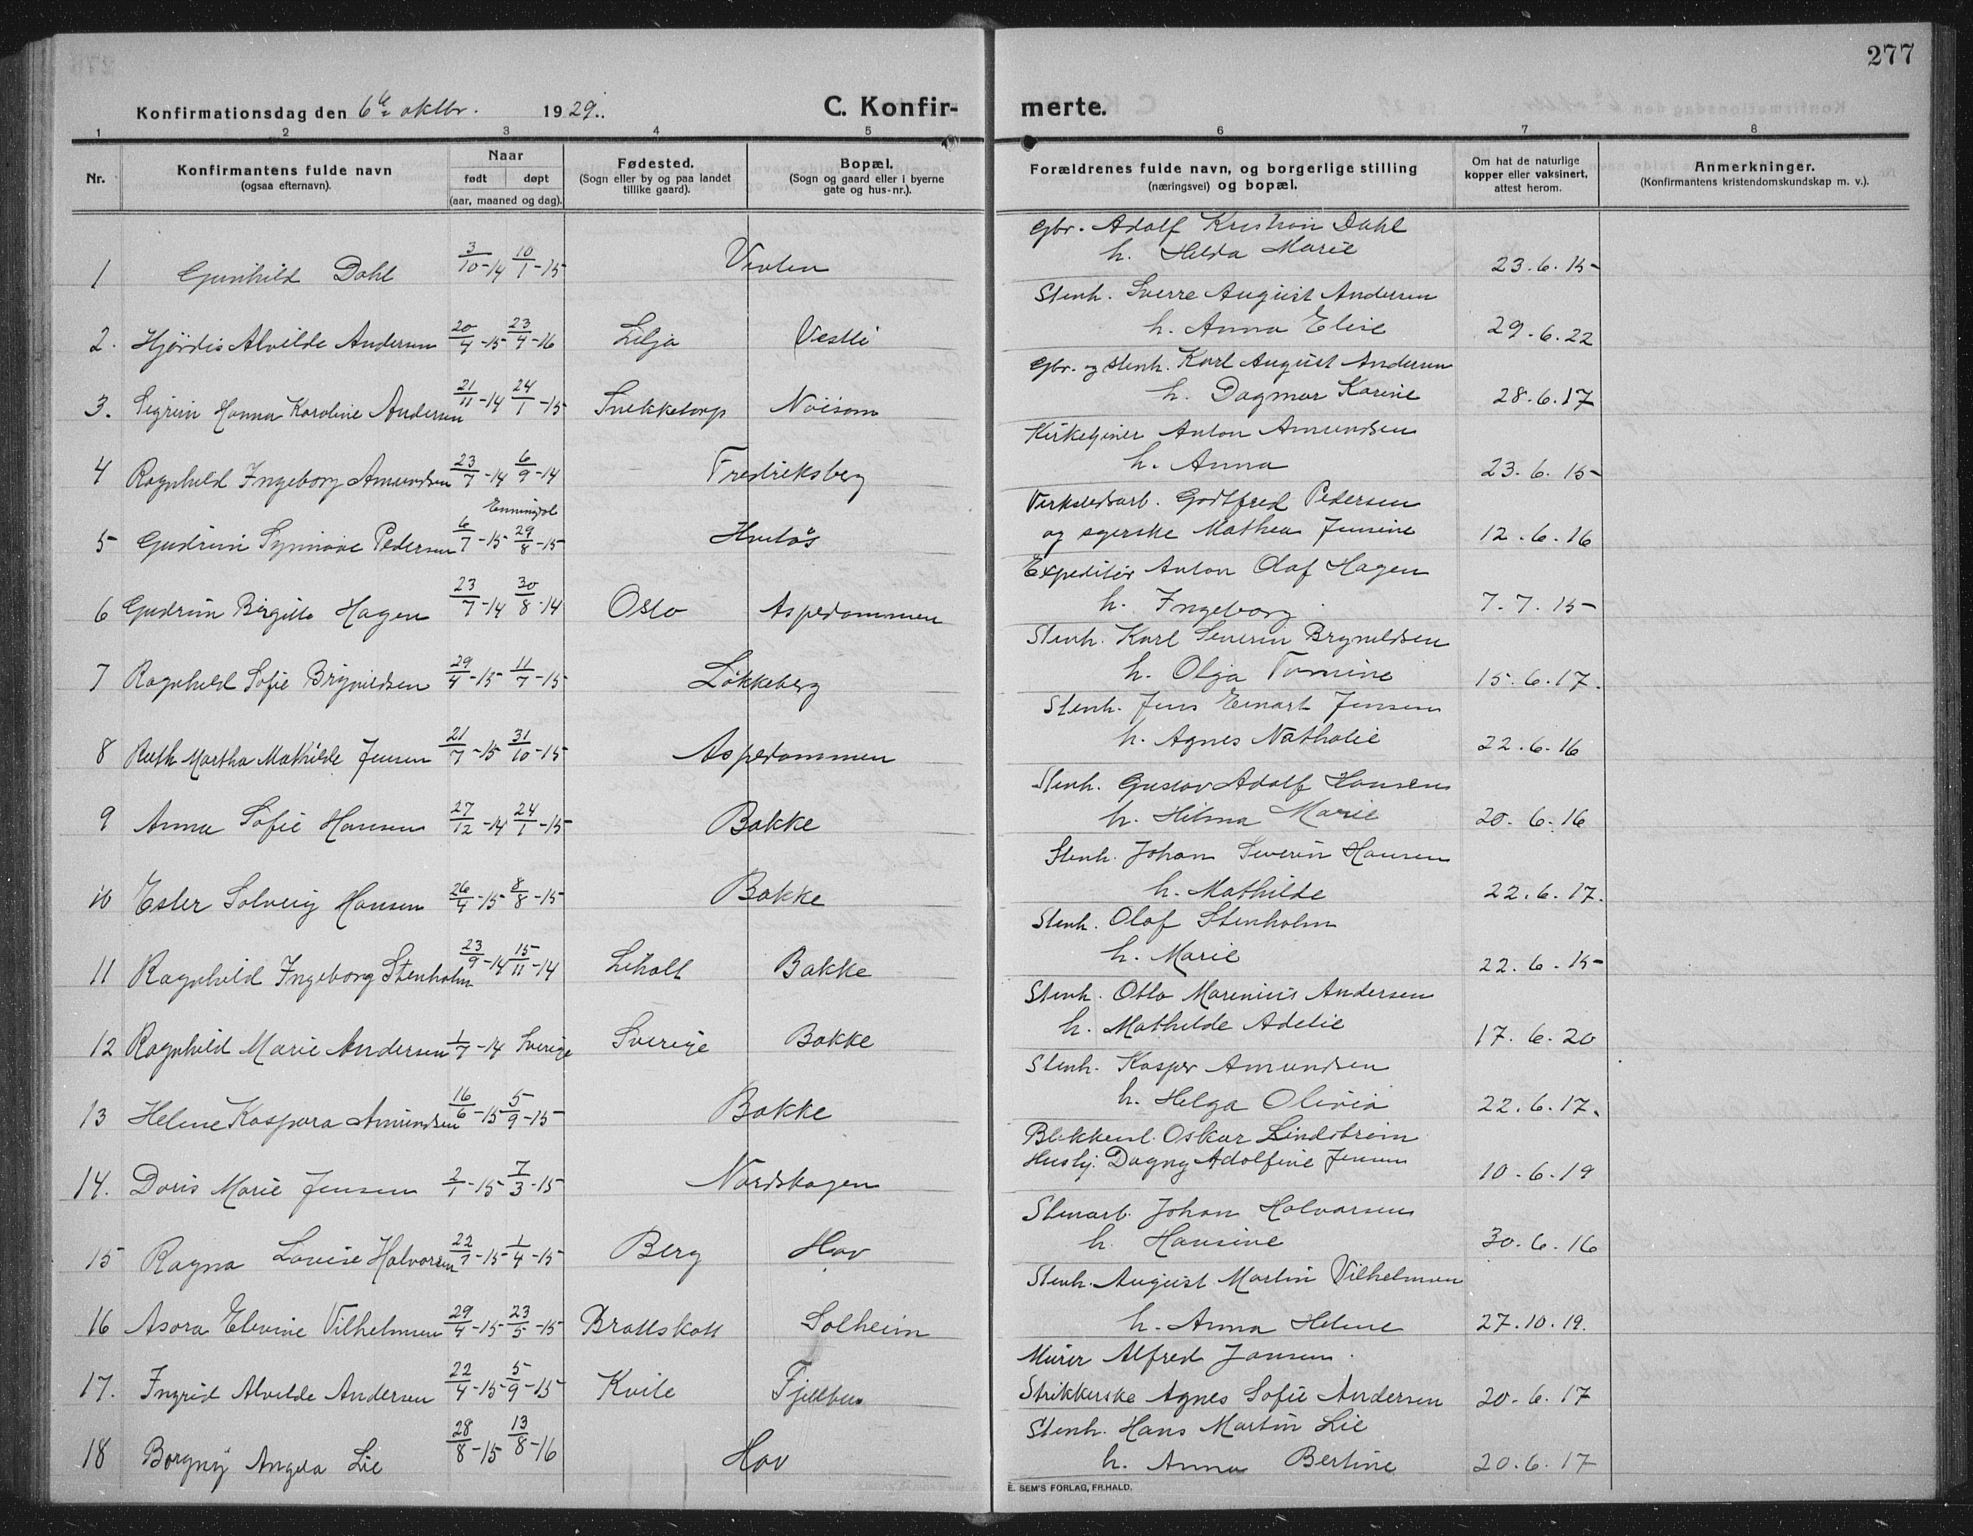 277
Konfirmationsdag den 6te oktbr. 1929. C. Konfirmerte.
1 2 3 4 5 6 7 8
Nr.
Konfirmantens fulde navn
(ogsaa efternavn).
Naar
født døpt
(aar, maaned og dag).
Fødested.
(Sogn eller by og paa landet
tillike gaard).
Bopæl.
(Sogn og gaard eller i byerne
gate og hus-nr.).
Forældrenes fulde navn, og borgerlige stilling
(næringsvei) og bopæl.
Om hat de naturlige
kopper eller vaksinert,
attest herom.
Anmerkninger.
(Konfirmantens kristendomskundskap m. v.).
Gbr. Adolf Kristian Dahl
1 Gunhild Dahl 3/10-14 10/1-15 h. Helda Marie 23.6.15
Stenh. Sverre August Andersen
2. Hjørdis Alvilde Andersen 20/4-15 23/4-16 Lilja Vestli h. Anna Elise 29.6.22
Gbr. og stenh. Karl August Andersen
3. Sigrun Hanna Karoline Andersen 21/11-14 24/1-15 Snekketorp Noisom h. Dagmar Karine 28.6.17
Kirketjener Anton Amundsen
4 Ragnhild Ingeborg Amundsen 23/7-14 6/9-14 Fredriksberg h. Anna 23.6.15
Enningdal
Verkstedsarb. Godtfred Pedersen
5 Gudrun Synnøve Pedersen 6/7-15 29/8-15 Hveløs og syerske Mathea Jensine 12.6.16
Expeditør Anton Olaf Hagen
6 Gudrun Birgitte Hagen 23/7-14 30/8-14 Oslo Aspedammen h. Ingeborg 7.7.15
Stenh. Karl Severin Brynildsen
7 Ragnhild Sofie Brynildsen 29/4-15 11/7-15 Løkkeberg h. Olga Tomine 15.6.17.
Stenh. Jens Einart Jensen
8 Ruth Martha Mathilde Jensen 21/7-15 31/10-15 Aspedammen h. Agnes Nathalie 22.6.16
Stenh. Gustav Adolf Hansen
9 Anna Sofie Hansen 27/12-14 24/1-15 Bakke h. Hilma Marie 20.6.16
Stenh. Johan Severin Hansen
10 Ester Solveig Hansen 26/4-15 8/8-15 Bakke h. Mathilde 22.6.17.
Stenh. Olaf Stenholm
11 Ragnhild Ingeborg Stenholm 23/9-14 15/11-14 Liholt Bakke h. Marie 22.6.15
Stenh. Otto Marenius Andersen
12 Ragnhild Marie Andersen 1/7-14 Sverige Sverige Bakke h. Mathilde Adelie 17.6.20
Stenh. Kasper Amundsen
13 Helene Kaspara Amundsen 16/6-15 5/9-15 Bakke h. Helga Olivia 22.6.17.
Blikkensl. Oskar Lindstrøm
14. Doris Marie Jensen 2/1-15 7/3-15 Nordskogen Hushj. Dagny Adolfine Jensen 10.6.19
Stenarb. Johan Halvorsen
15 Ragna Lovise Halvorsen 22/1-15 1/4-15 Berg Hov h. Hansine 30.6.16
Stenh. August Martin Vilhelmsen
16 Asora Elevine Vilhelmsen 29/4-15 23/5-15 Brattskott Solheim h. Anna Helene 27.10.19.
Murer Alfred Jansen.
17. Ingrid Alvilde Andersen 22/4-15 5/9-15 Kvile Fjellheim Strikkerske Agnes Sofie Andersen 20.6.17
Stenh. Hans Martin Lie
18 Borgny Angela Lie 28/8-15 13/8-16 Hov h. Anna Bertine 20.6.17
E. SEM'S FORLAG, FR.HALD.